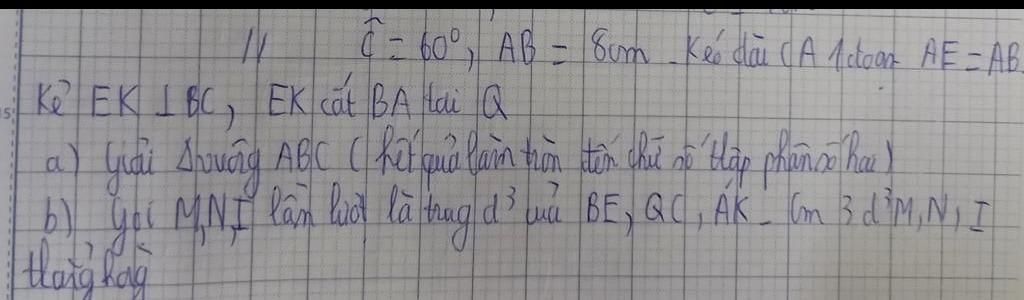 // Ĉ = 60°, AB = 8cm. Kéo dài CA 1 đoạn AE = AB
Kẻ EK ⊥ BC, EK cắt BA tại Q
a) Giải Δvuông ABC (kết quả làm tròn đến chữ số thập phân số hai)
b) gọi M,N,I lần lượt là trug d³ của BE, QC, AK. Cm 3 d³ M, N, I
thẳng hàng